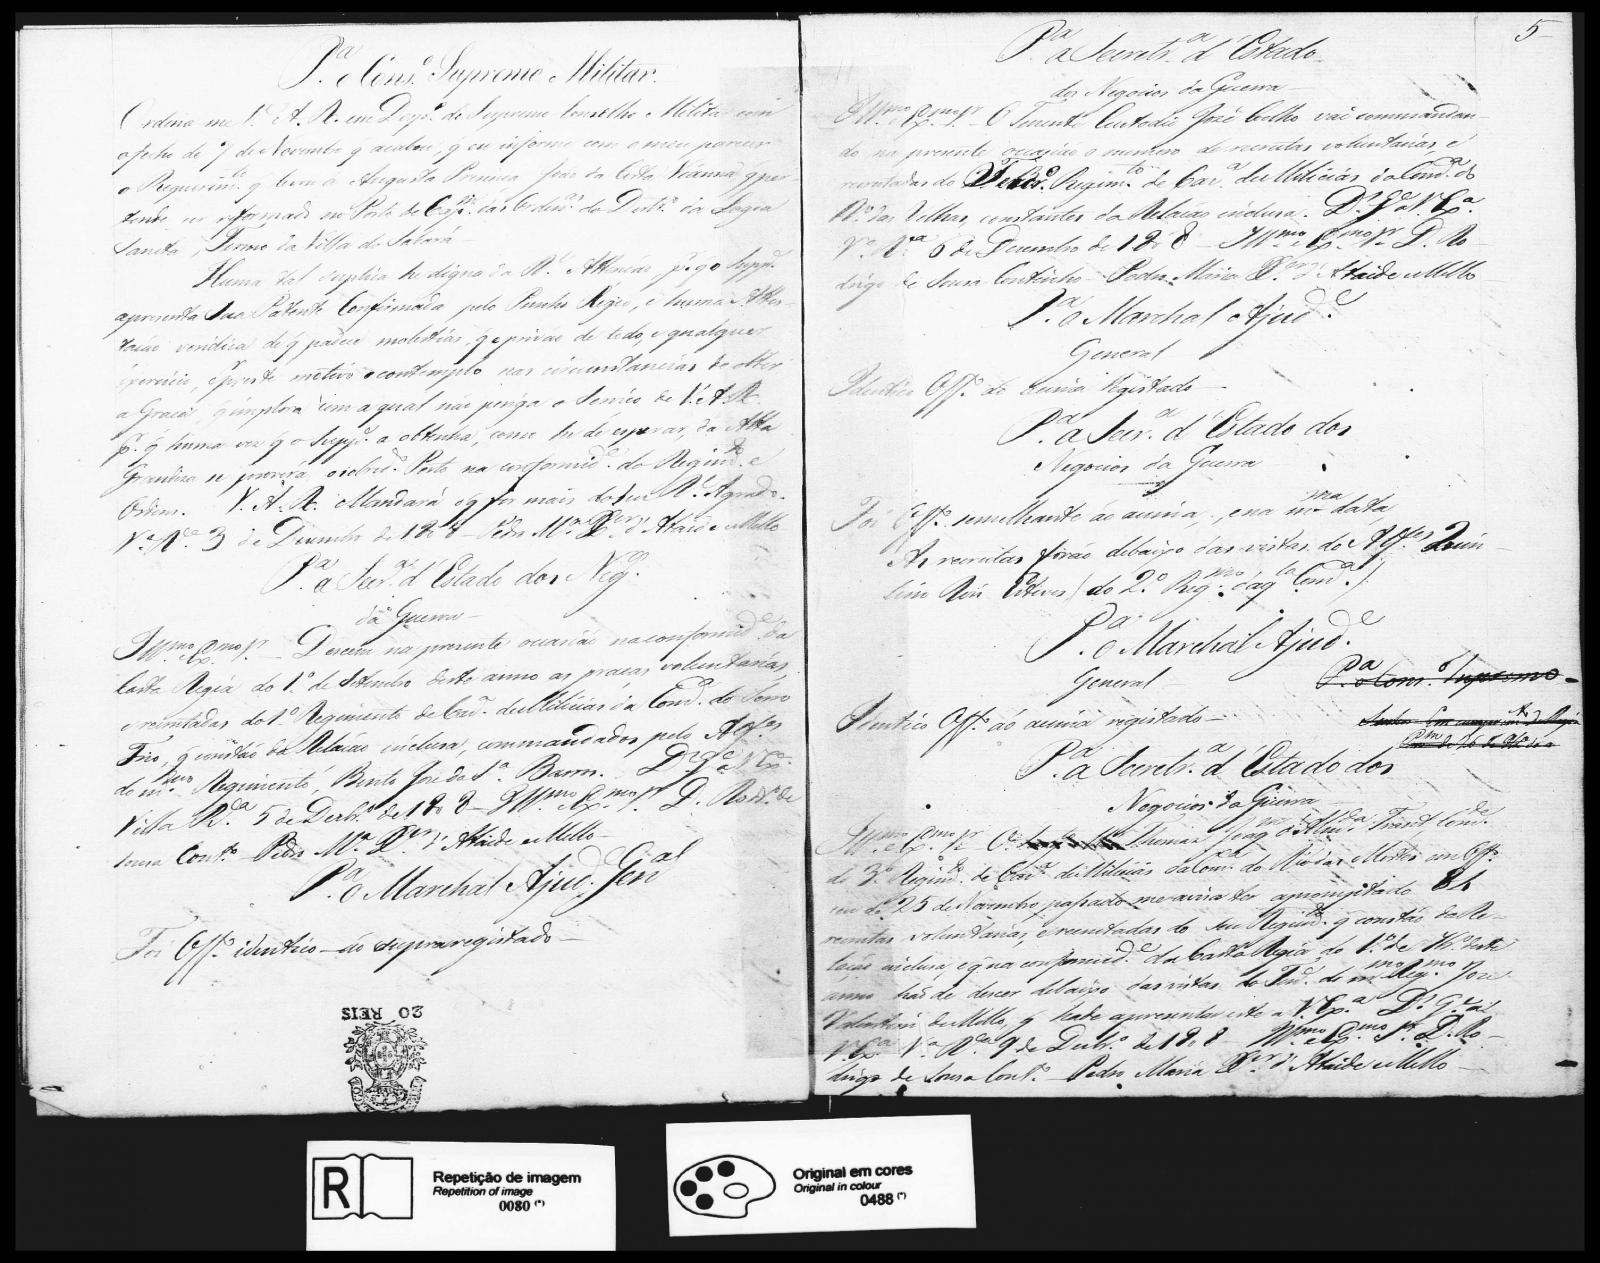 P.ª o Cons.º Supremo Militar.
Ordena me V. A. R. em Desp.º do Supremo Conselho Militar com
o fecho de 7 de Novembro q acabou, q eu informe com o meu parecer
o Requerim.to q leva á Augusta Prezença João da Costa Vianna, q per
tende ser reformado no Posto de Cap.m das Orden.ças do Destr.º da Lagoa
Santa, Termo da Villa do Sabará
Huma tal suplica he digna da R.l Attenção p.r q o Supp.e
apresenta Sua Patente Confirmada pelo Punho Régio, e huma Attes-
tação veridica de q padece molestias, q o privão de todo, e qualquer
exercicio, e por este motivo o contemplo nas circunstancias de obter
a Graça, q implora com a qual não periga o Serviço de V. A. R.
p.r q huma vez q o Supp.e a obtenha, como he de esperar, da Alta
Grandeza se proverá o sobred.º Posto na conformid.e do Regim.to e
Ordens. V. A. R. Mandará o q for mais do Seu R.l Agrado.
V.ª R.ca 3 de Dezembro de 1808 - Pedro M.ª X.er d'Ataide e Mello
P.ª a Secr.ª d'Estado dos Neg.os
da Guerra
Ill.mo e Ex.mo Sr. - Descem na presente occazião na conformid.e da
Carta Regia do 1.º de Setembro deste anno as praças voluntarias,
e recrutadas do 1.º Regimento de Cav.ª de Milicias da Com.ca do Serro
Frio, q constão da Relação incluza, commandados pelo Alferes
do m.mo Regimento, Bento José da S.ª Barros. D.s g.e a V. Ex.ª
Villa R.ca 5 de Dezbr.º de 1808 - Ill.mo e Ex.mo Sr. D. Rodr.º de
Sousa Cout.º - Pedro M.ª X.er d'Ataide e Mello
P.ª o Marchal Ajud.e Gen.al
Foi Off.º identico ao supra registado
20 REIS
5
P.ª a Secretr.ª d'Estado
dos Negocios da Guerra
Ill.mo e Ex.mo Sr. - O Tenente Custodio José Coelho vai commandan-
do na presente occazião o numero de recrutas voluntarias, e
recrutadas do Regim.to de Cav.ª de Milicias da Com.ca do
R.º das Velhas, constantes da Relação incluza. D.s g.e a V. Ex.ª
V.ª R.ca 6 de Dezembro de 1808 - Ill.mo e Ex.mo Sr. D. Ro-
drigo de Sousa Coutinho - Pedro Maria X.er d'Ataide e Mello
P.ª o Marchal Ajud.e
General
Identico Off.º ao acima registado
P.ª a Secr.ª d'Estado dos
Negocios da Guerra
Foi Off.º semelhante ao acima, e na m.ma data
As recrutas forão debaixo das vistas do Alferes
do 2.º Reg.mto daq.la Com.ca
P.ª o Marchal Ajud.e
General
P.ª o Cons.º Supremo
Identico Off.º ao acima registado
P.ª a Secretr.ª d'Estado dos
Negocios da Guerra
Ill.mo e Ex.mo Sr. O Thomas Joaq.m d'Alm.da Com.de
do 3.º Regim.to de Cav.ª de Milicias da Com.ca do Rio das Mortes em Off.º
de 25 de Novembro passado me avisa ter apromptado
recrutas voluntarias, e recrutadas do seu Regim.to q constão da Re-
lação incluza e q na conformid.e da Carta Regia do 1.º de 7br.º deste
anno hão de descer debaixo das vistas do Ten.e do m.mo Reg.mto José
Valentim de Mello, q hade apresentar este a V. Ex.ª D.s g.e a
V. Ex.ª V.ª R.ca 9 de Dezbr.º de 1808 - Ill.mo e Ex.mo Sr. D. Ro-
drigo de Sousa Cout.º - Pedro Maria X.er d'Ataide e Mello
R
Repetição de imagem
Repetition of image
0080 (*)
Original em cores
Original in colour
0488 (*)